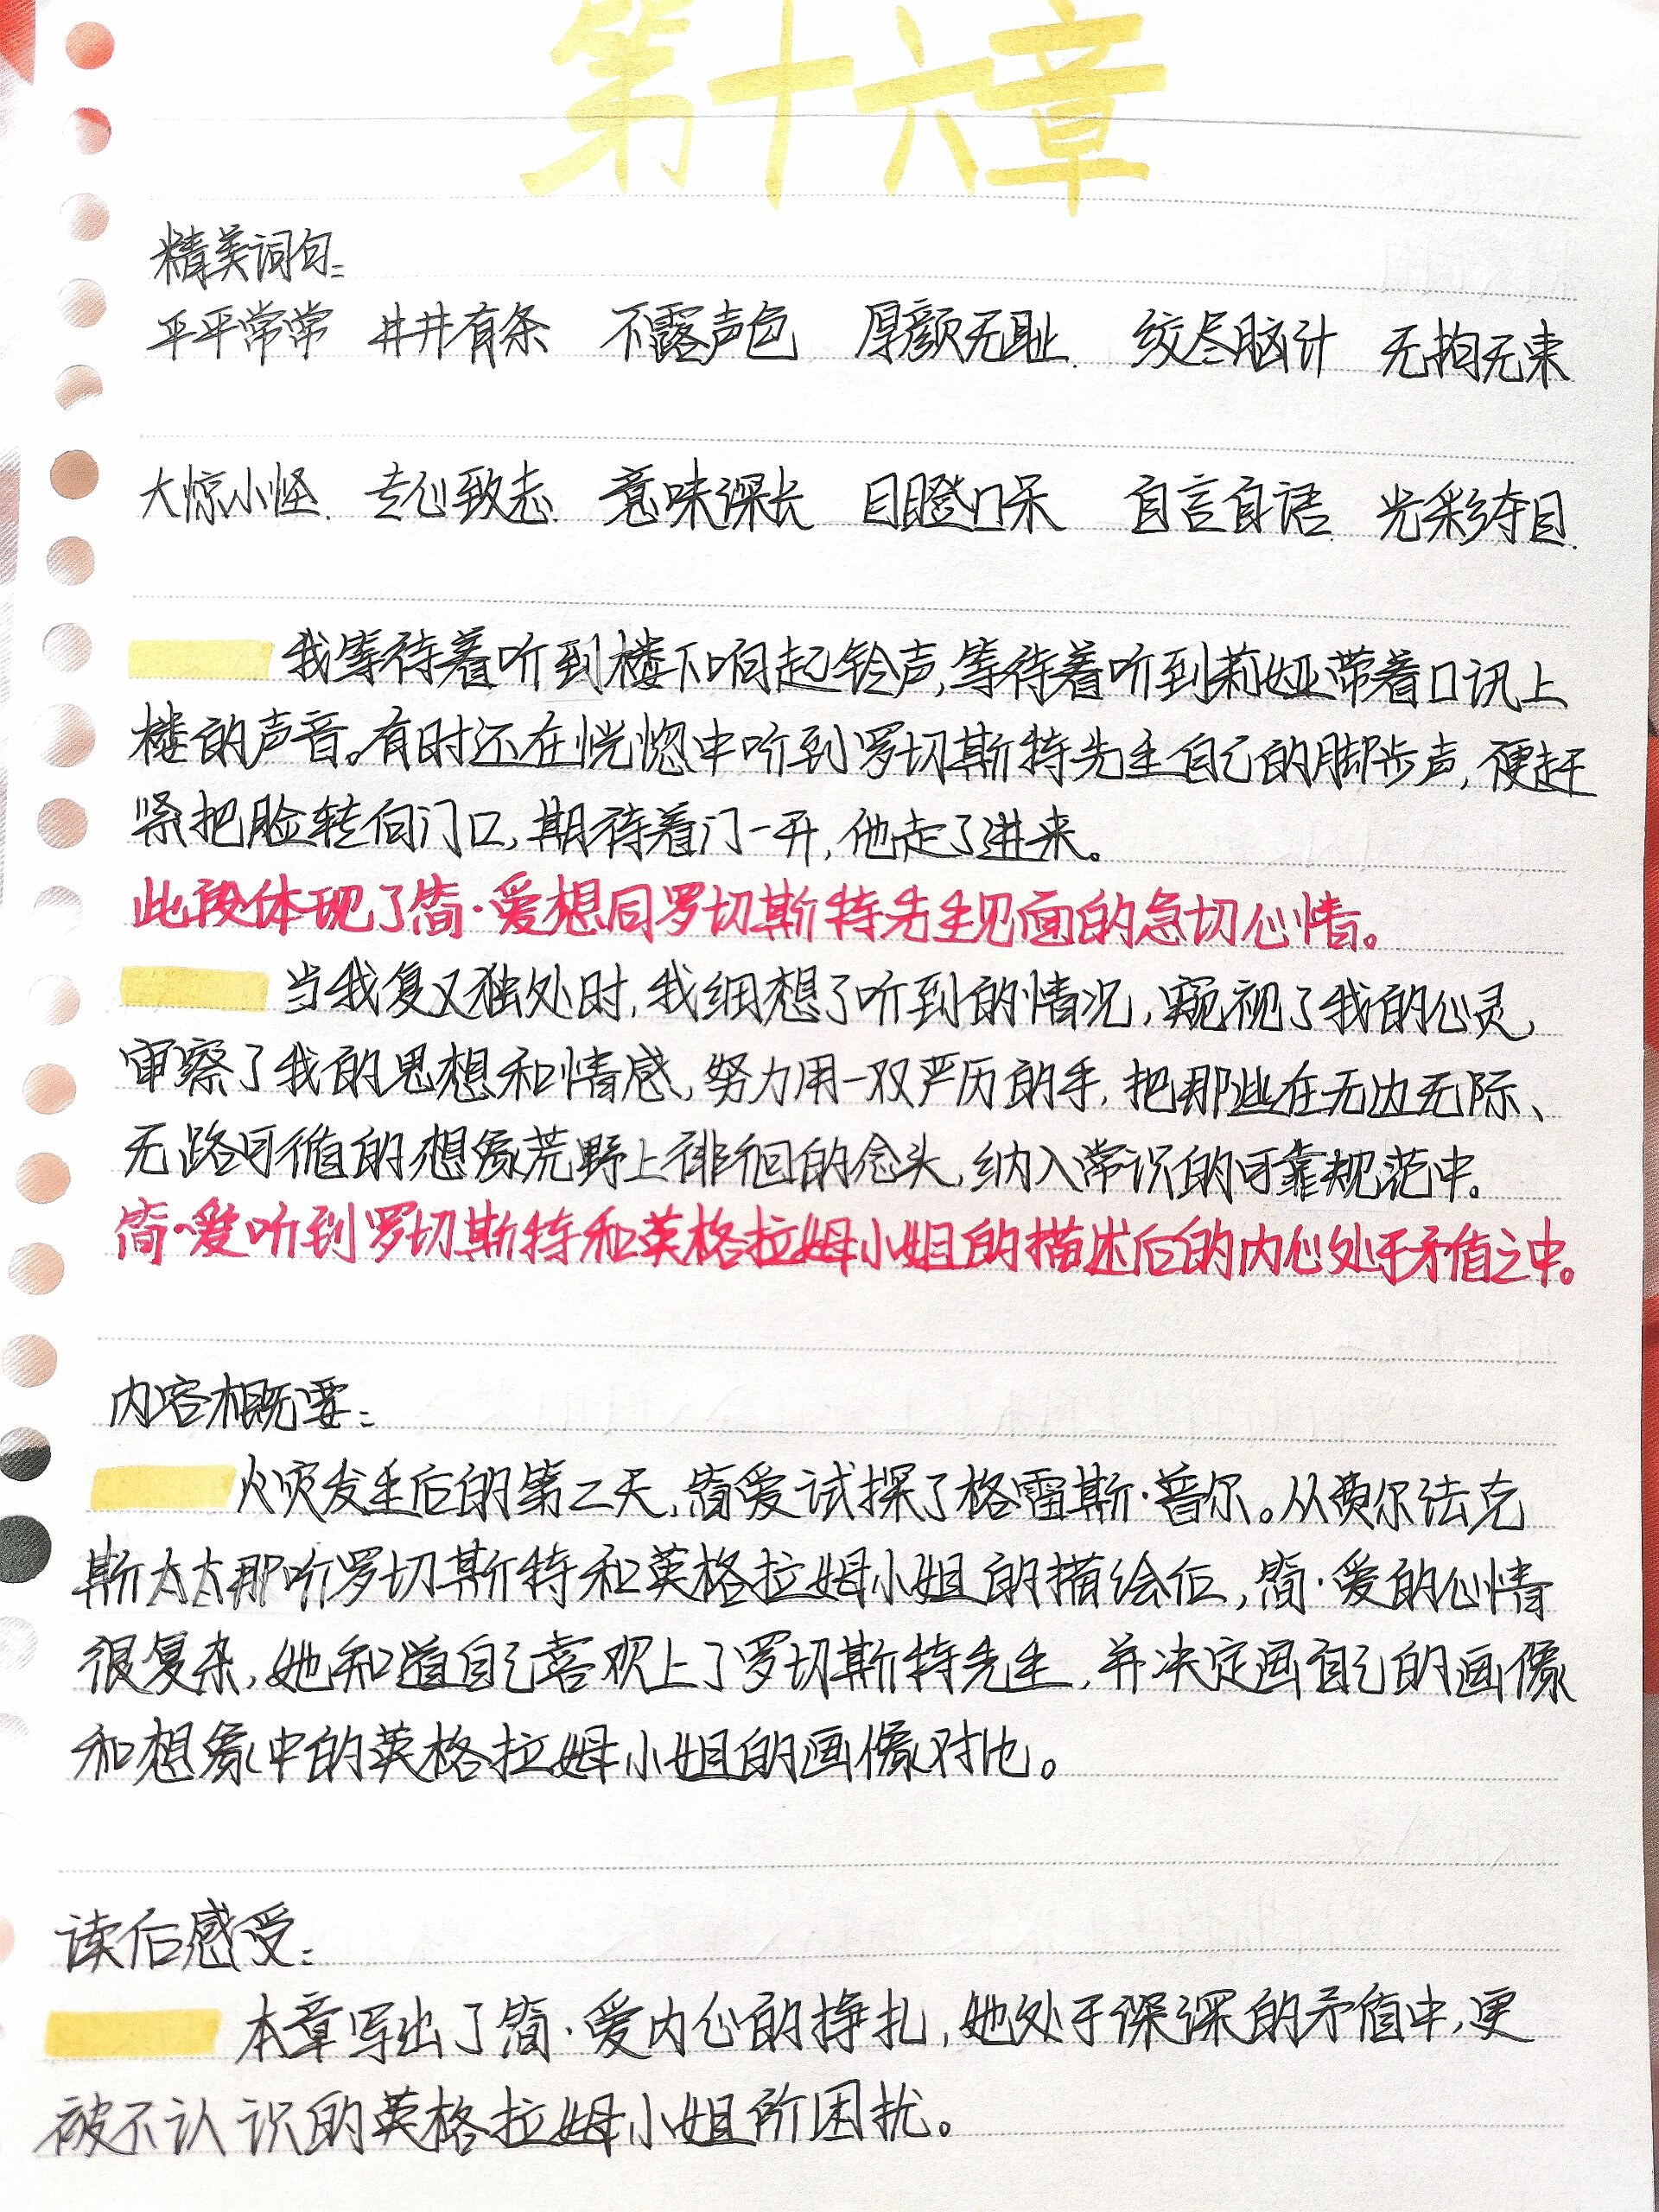 第十六章
精美词句:
平平常常 井井有条 不露声色 厚颜无耻. 绞尽脑汁 无拘无束
大惊小怪. 专心致志. 意味深长 目瞪口呆 自言自语. 光彩夺目.
我等待着听到楼下响起铃声,等待着听到莉娅带着口讯上
楼的声音。有时还在恍惚中听到罗切斯特先生自己的脚步声,便赶
紧把脸转向门口,期待着门一开,他走了进来。
此段体现了简·爱想同罗切斯特先生见面的急切心情。
当我复又独处时,我细想了听到的情况,窥视了我的心灵,
审察了我的思想和情感,努力用一双严历的手,把那些在无边无际、
无路可循的想象荒野上徘徊的念头,纳入常识的可靠规范中。
简·爱听到罗切斯特和英格拉姆小姐的描述后的内心处于矛盾之中。
内容概要:
火灾发生后的第二天,简爱试探了格雷斯·普尔。从费尔法克
斯太太那听罗切斯特和英格拉姆小姐的描绘后,简·爱的心情
很复杂,她知道自己喜欢上了罗切斯特先生,并决定画自己的画像
和想象中的英格拉姆小姐的画像对比。
读后感受:
本章写出了简·爱内心的挣扎,她处于深深的矛盾中,更
被不认识的英格拉姆小姐所困扰。